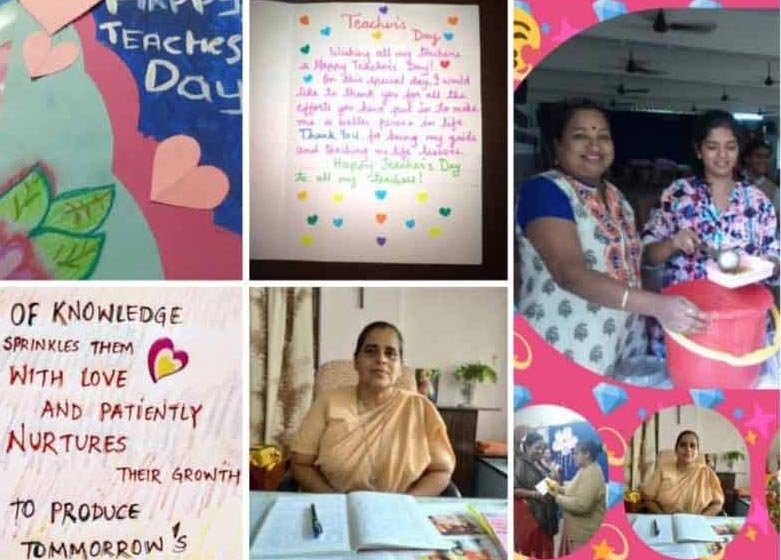 HAPPY
TEACHES
DAY
Teacher's
Day
Wishing all my teachers
a Happy Teacher's Day!
On this special day, I would
like to thank you for all the
efforts you have put in to make
me a better person in life.
Thank You for being my guide
and teaching me life lessons.
Happy Teacher's Day
to all my teachers!
OF KNOWLEDGE
SPRINKLES THEM
WITH LOVE
AND PATIENTLY
NURTURES
THEIR GROWTH
TO PRODUCE
TOMMORROW'S